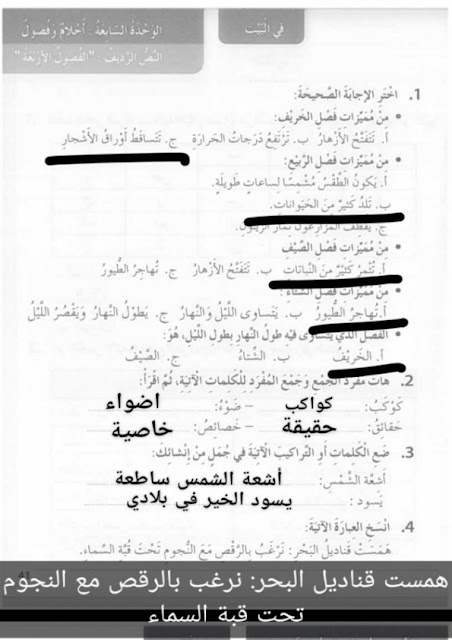 في الْبَيْت
الوَحْدَةُ السّابِعَةُ : أَحْلامٌ وَفُصولٌ
النَّصُّ الرَّديفُ : "الفُصولُ الأَرْبَعَةُ"
1. اخْتَرِ الإِجابَةَ الصَّحيحَةَ:
• مِنْ مُمَيِّزات فَصْلِ الخَريْف:
أ. تَتَفَتَّحُ الأَزْهارُ ب. تَرْتَفِعُ دَرَجاتُ الحَرارَةِ ج. تَتَساقَطُ أَوْراقُ الأَشْجارِ
• مِنْ مُمَيِّزات فَصْلِ الرَّبيْع:
أ. يَكونُ الطَّقْسُ مُشْمِسًا لِساعاتٍ طَويلَةٍ.
ب. تَلدُ كَثيرٌ مِنَ الحَيَوانات.
ج. يَقْطِفُ المُزارِعونَ ثِمارَ الزَّيْتونِ.
مِنْ مُمَيِّزات فَصْلِ الصَّيْف
أ. تُثْمِرُ كَثيرٌ مِنَ النَّباتات ب. تَتَفَتَّحُ الأَزْهارُ ج. تُهاجِرُ الطُّيورُ
• مِنْ مُمَيِّزات فَصْلِ الشِّتاء :
أ. تُهاجِرُ الطُّيورُ ب. يَتَساوى اللَّيْلُ وَالنَّهارُ ج. يَطولُ النَّهارُ وَيَقْصُرُ اللَّيْلُ
• الفَصْلُ الَّذي يَتَساوى فيْهِ طولُ النَّهارِ بِطولِ اللَّيْلِ، هُوَ:
أ. الخَريْفُ ب. الشِّتاءُ ج. الصَّيْفُ
2. هاتِ مُفْرَدَ الجَمْعِ وَجَمْعَ المُفْرَدِ لِلْكَلِماتِ الآتِيَةِ، ثُمَّ اقْرَأْ:
كَوْكَبٌ: كواكب – ضَوْءٌ: اضواء
حَقائِقُ: حقيقة – خَصائِصُ: خاصية
3. ضَعِ الْكَلِماتِ أَو التَّراكيبَ الآتِيَةَ في جُمَلٍ مِنْ إِنْشائِكَ:
أَشِعَّةُ الشَّمْسِ: أشعة الشمس ساطعة
يَسود : يسود الخير في بلادي
4. انْسَخِ العِبارَةَ الآتِيَةَ:
هَمَسَتْ قَناديلُ البَحْرِ: نَرْغَبُ بِالرَّقْصِ مَعَ النُّجومِ تَحْتَ قُبَّةِ السَّماءِ.
همست قناديل البحر: نرغب بالرقص مع النجوم
تحت قبة السماء